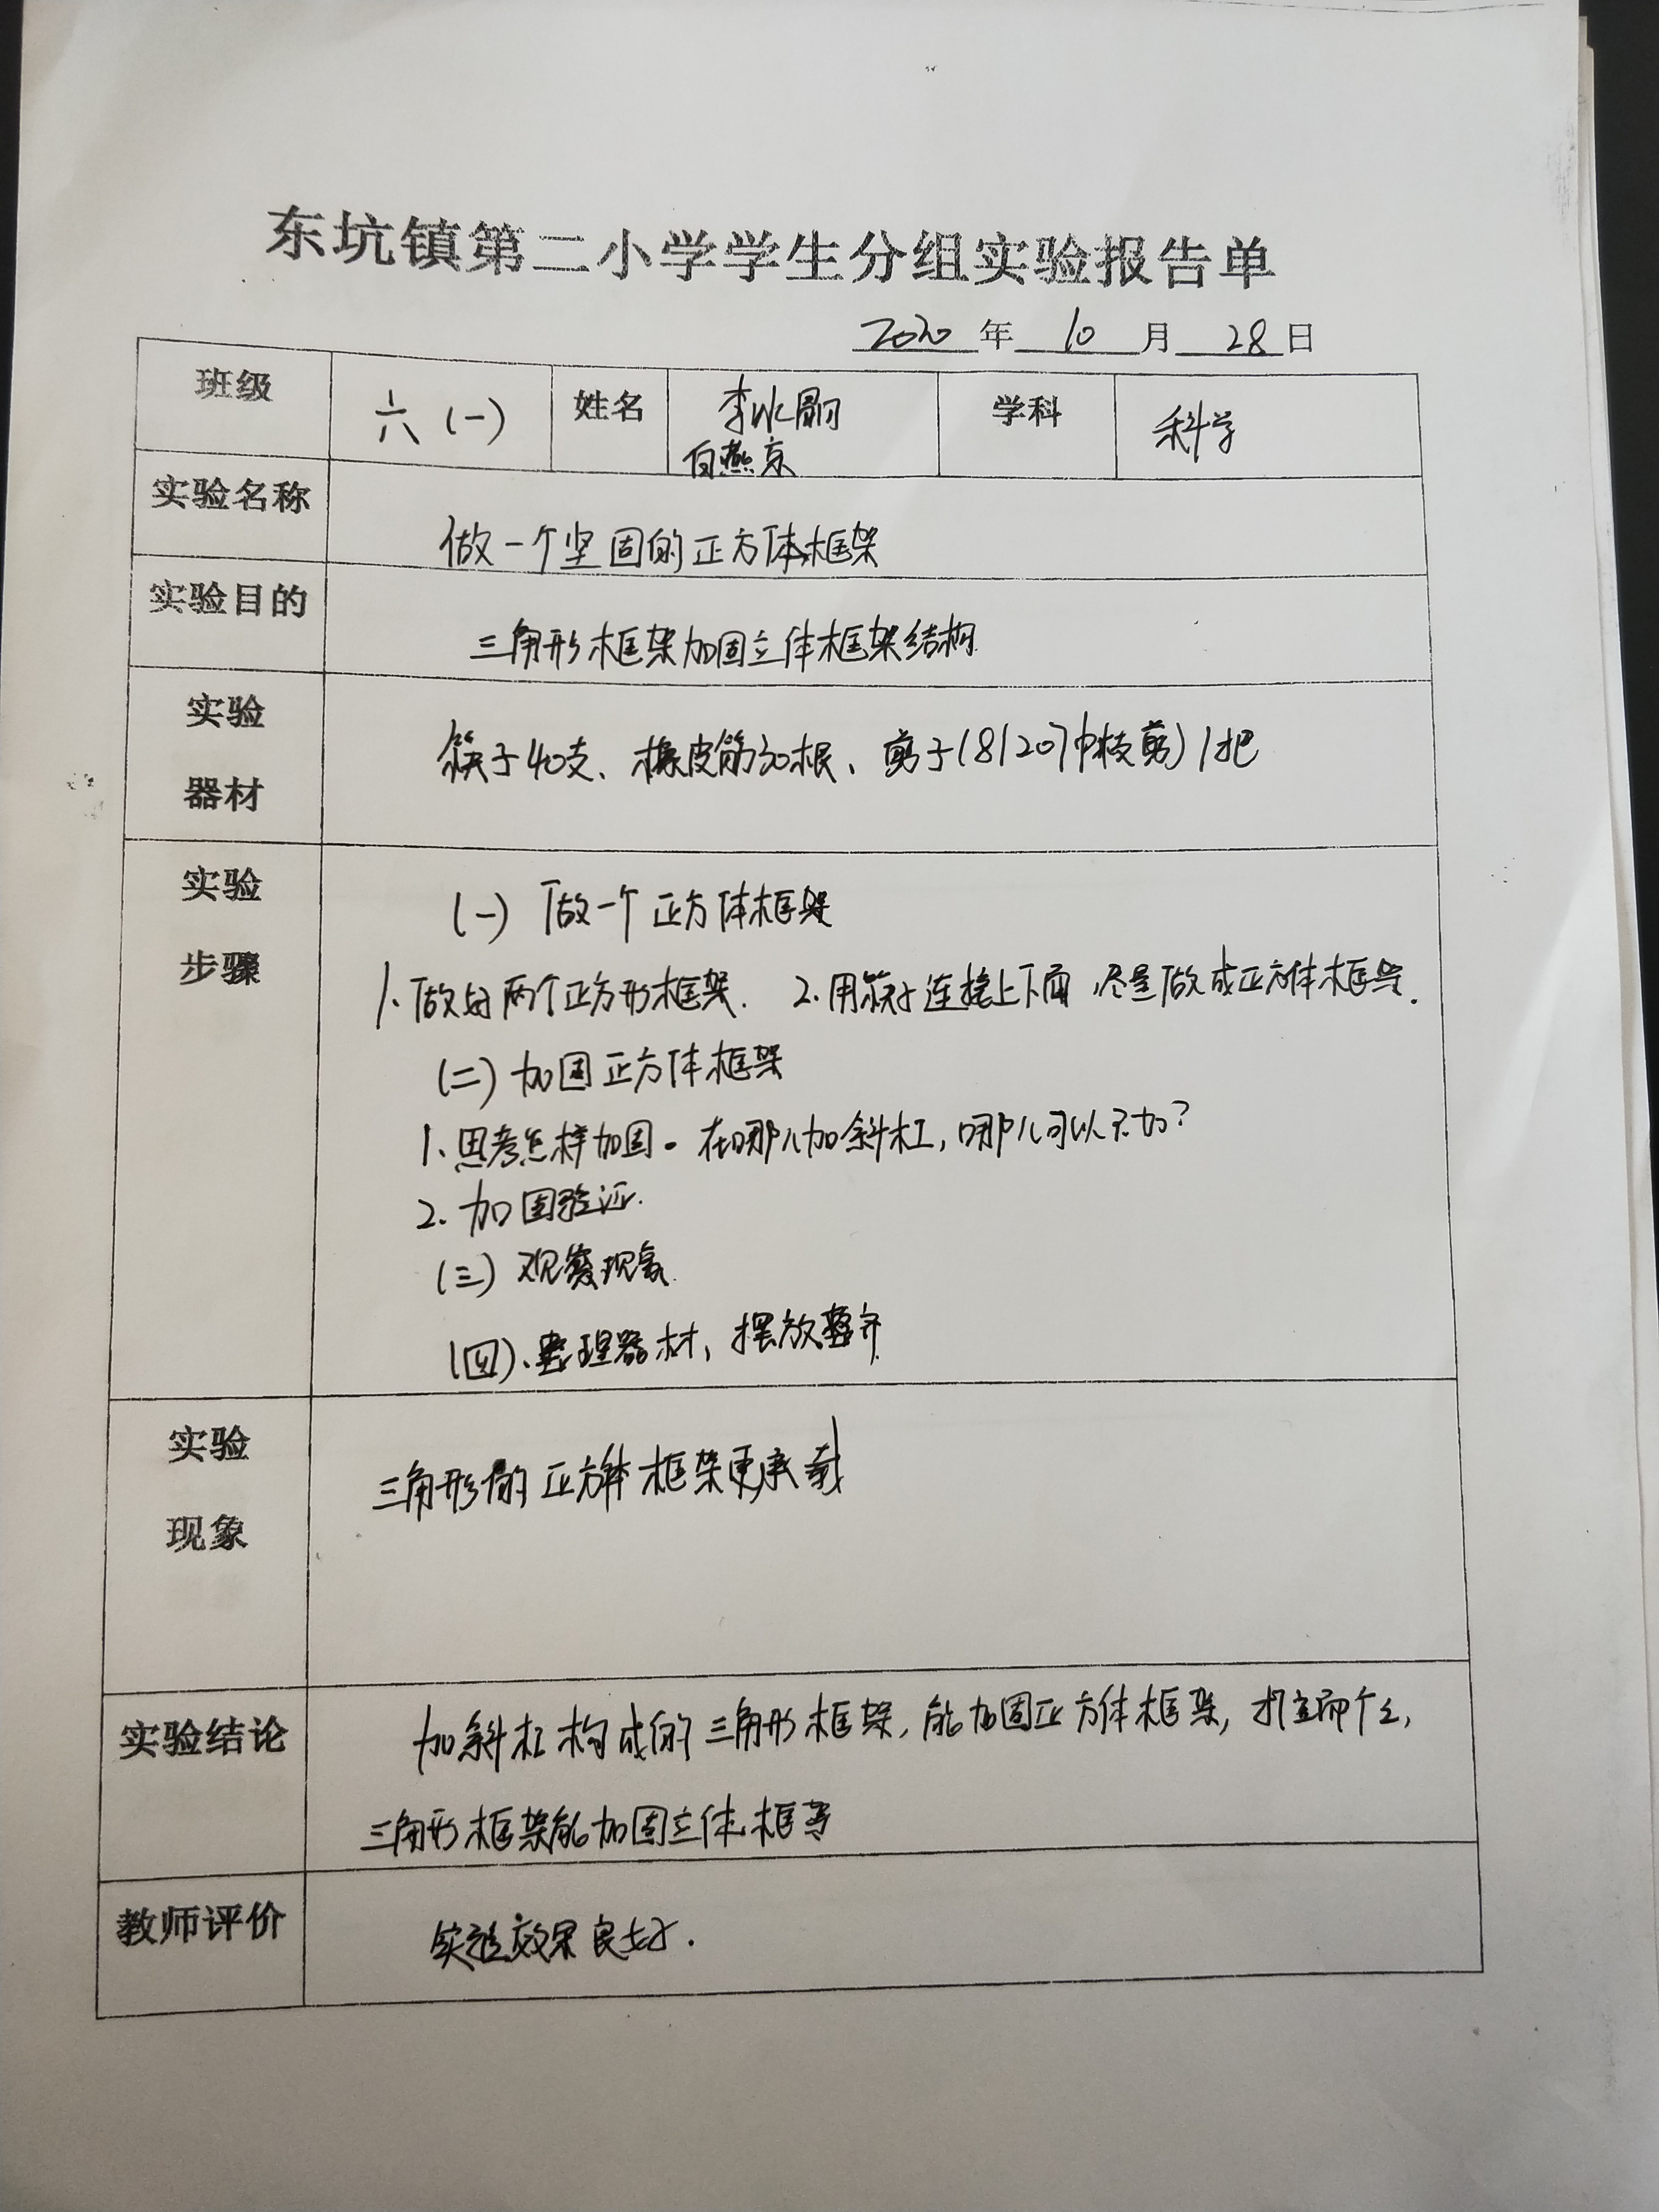 东坑镇第二小学学生分组实验报告单
2020年10月28日
班级 六(一) 姓名 李冰 学科 科学
白燕京
实验名称 做一个坚固的正方体框架
实验目的 三角形框架加固立体框架结构.
实验器材 筷子40支、橡皮筋30根、剪子(81207 枝剪)1把
实验步骤 (一) 做一个正方体框架
1.做好两个正方形框架. 2.用筷子连接上下面,尽量做成正方体框架.
(二)加固正方体框架
1.思考怎样加固。在哪儿加斜杠,哪儿可以不加?
2.加固验证.
(三)观察现象.
(四)、整理器材,摆放整齐.
实验现象 三角形的正方体框架更承载
实验结论 加斜杠构成的三角形框架,能加固正方体框架,
三角形框架能加固立体框
教师评价 实验效果良好.